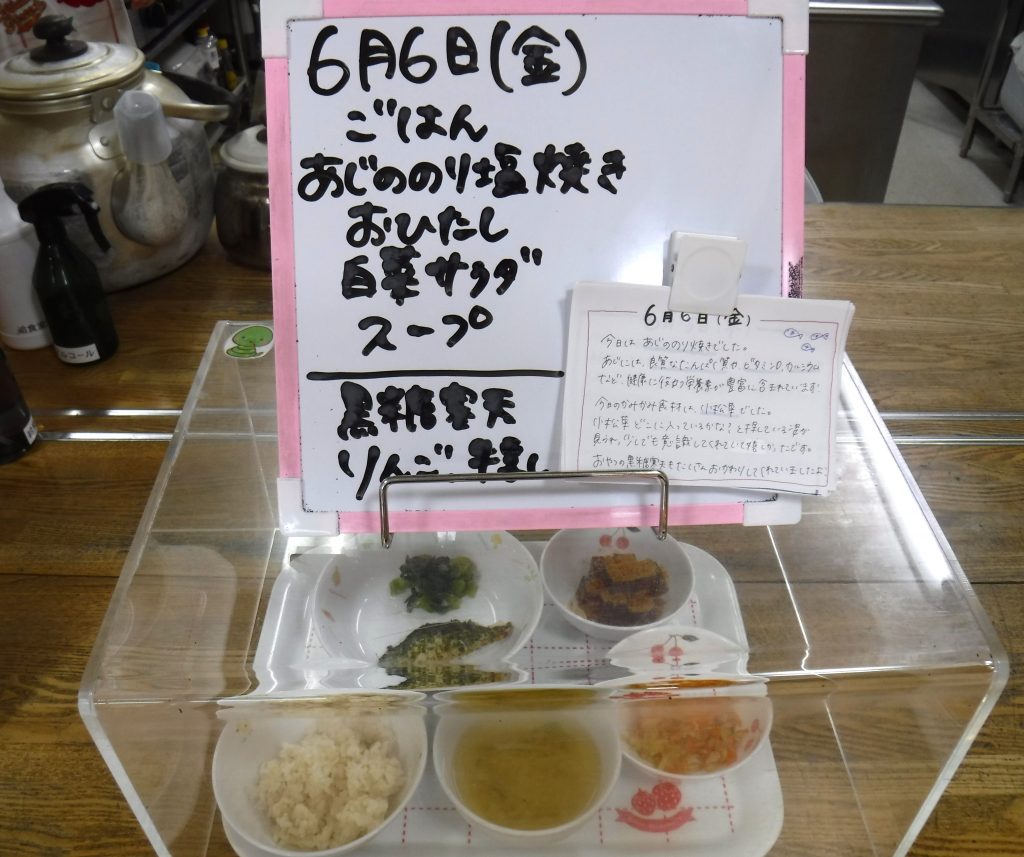 6月6日(金)
ごはん
あじののり塩焼き
おひたし
白菜サラダ
スープ
黒糖寒天
りんご
6月6日(金)
今日は あじののり焼きでした。
あじには、良質なたんぱく質や、ビタミンD、カルシウム
など、健康に 栄養素が豊富に含まれています
今日のかみかみ食材は、小松菜でした。
小松菜どこに入っているかな?と探している姿が
見られ、少しでも意識してくれていて嬉しかったです。
おやつの黒糖寒天もたくさんおかわりしてくれていましたよ
給食室
アルコール